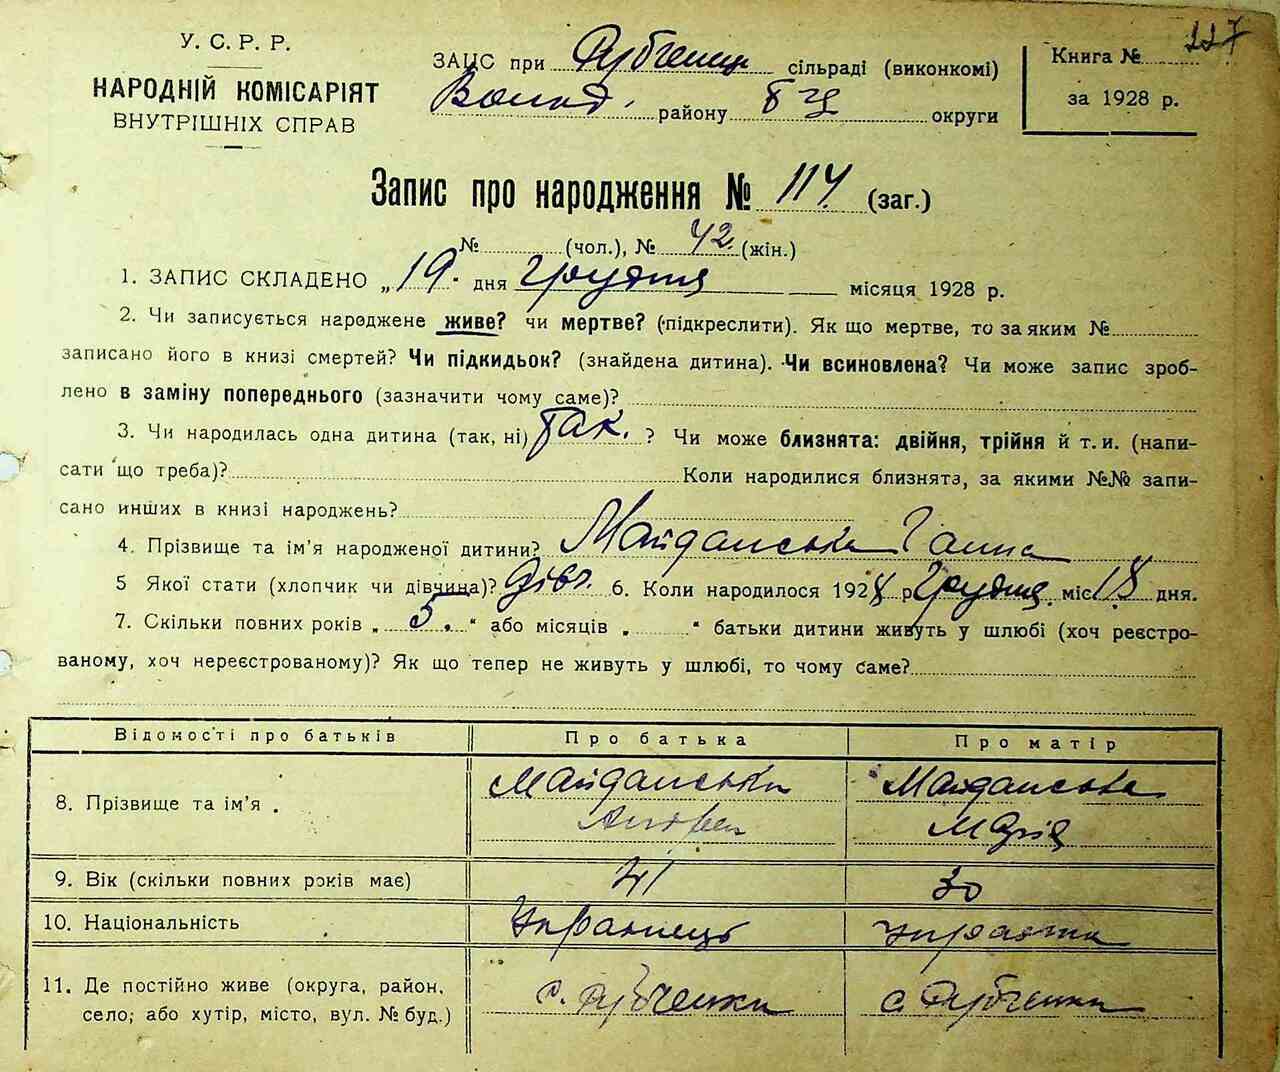 227
У. С. Р. Р.
НАРОДНІЙ КОМІСАРІЯТ
ВНУТРІШНІХ СПРАВ
ЗАЦС при Рубченец сільраді (виконкомі)
Волод. району БЦ округи
Книга №
за 1928 р.
Запис про народження № 114. (заг.)
№ (чол.), № 42. (жін.)
1. ЗАПИС СКЛАДЕНО „19.“ дня Грудня місяця 1928 р.
2. Чи записується народжене живе? чи мертве? (підкреслити). Як що мертве, то за яким №
записано його в книзі смертей? Чи підкидьок? (знайдена дитина). Чи всиновлена? Чи може запис зроб-
лено в заміну попереднього (зазначити чому саме)?
3. Чи народилась одна дитина (так, ні) Так. ? Чи може близнята: двійня, трійня й т. и. (напи-
сати що треба)? Коли народилися близнята, за якими №№ запи-
сано инших в книзі народжень?
4. Прізвище та ім’я народженої дитини? Майданська Ганна
5 Якої стати (хлопчик чи дівчина)? дівч. 6. Коли народилося 1928 р Грудня. міс 18 дня.
7. Скільки повних років „ 5. “ або місяців „ “ батьки дитини живуть у шлюбі (хоч реєстро-
ваному, хоч нереєстрованому)? Як що тепер не живуть у шлюбі, то чому саме?
Відомості про батьків Про батька Про матір
8. Прізвище та ім’я . Майданський Майданська
Андрей Марія
9. Вік (скільки повних років має) 41 30
10. Національність Українець українка
11. Де постійно живе (округа, район,
село; або хутір, місто, вул. № буд.) с. Рубченки с. Рубченки